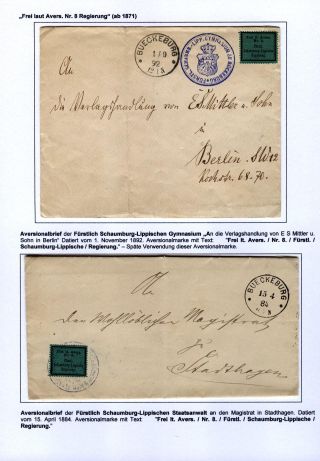 „Frei laut Avers. Nr. 8 Regierung" (ab 1871)
BUECKEBURG
1 / 9
92
FÜRSTL. SCHAUMB.-LIPP. GYMNASIUM
Frei lt. Avers.
No. 8.
Fürstl.
Schaumburg-Lippische
Regierung.
An
die Verlagshandlung von E. S. Mittler u. Sohn
in
Berlin. SW12
Kochstr. 68-70.
Aversionalbrief der Fürstlich Schaumburg-Lippischen Gymnasium „An die Verlagshandlung von E S Mittler u.
Sohn in Berlin" Datiert vom 1. November 1892. Aversionalmarke mit Text: "Frei lt. Avers. / Nr. 8. / Fürstl. /
Schaumburg-Lippische / Regierung." – Späte Verwendung dieser Aversionalmarke.
BUECKEBURG
15 4
84
An
den Wohllöblichen Magistrat
zu
Stadthagen
Frei lt. Avers.
No. 8.
Fürstl.
Schaumburg-Lippische
Regierung.
Aversionalbrief der Fürstlich Schaumburg-Lippischen Staatsanwalt an den Magistrat in Stadthagen. Datiert
vom 15. April 1884. Aversionalmarke mit Text: "Frei lt. Avers. / Nr. 8. / Fürstl. / Schaumburg-Lippische /
Regierung."